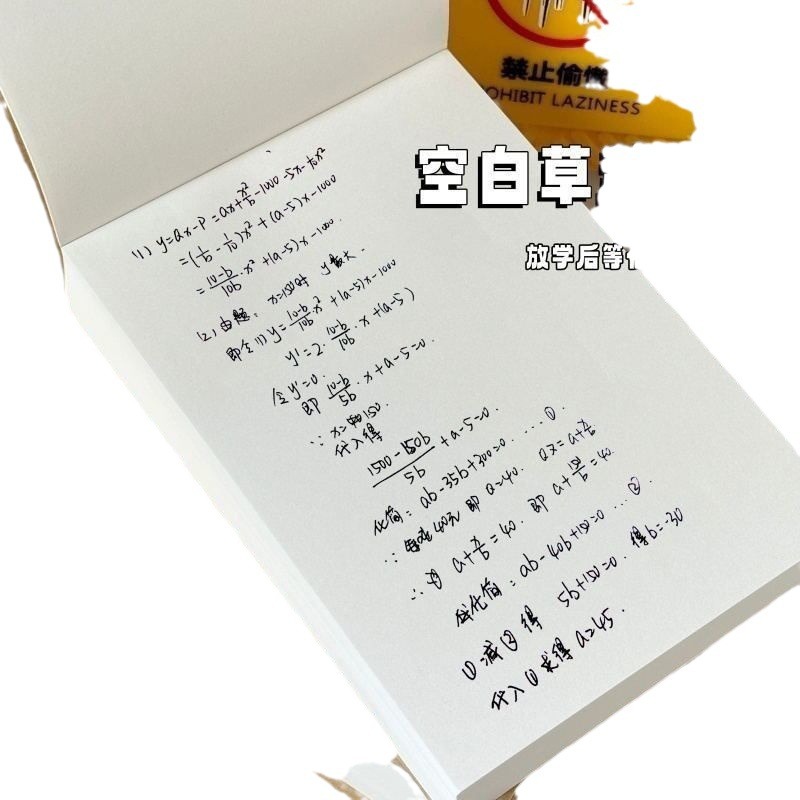 禁止偷
OHIBIT LAZINESS
空白草
放学后等
(1) y=ax-P=ax+x²/b-1000-5x-1/10x²
=(1/b-1/10)x²+(a-5)x-1000
=10-b/10b·x²+(a-5)x-1000.
(2) 由题: x=150时 y最大.
即令(1) y=10-b/10b x²+(a-5)x-1000
y'=2·10-b/10b·x+(a-5)
令y'=0.
即 10-b/5b·x+a-5=0.
∵ x=150.
代入得
1500-150b/5b+a-5=0.
化简: ab-35b+300=0. ....①.
∵ 40元 即 Q=40. Q=a+x/b
∴ a+x/b=40. 即 a+150/b=40.
化简: ab-40b+150=0 ...②.
①减②得 5b+150=0. 得b=-30
代入①求得 a=45.